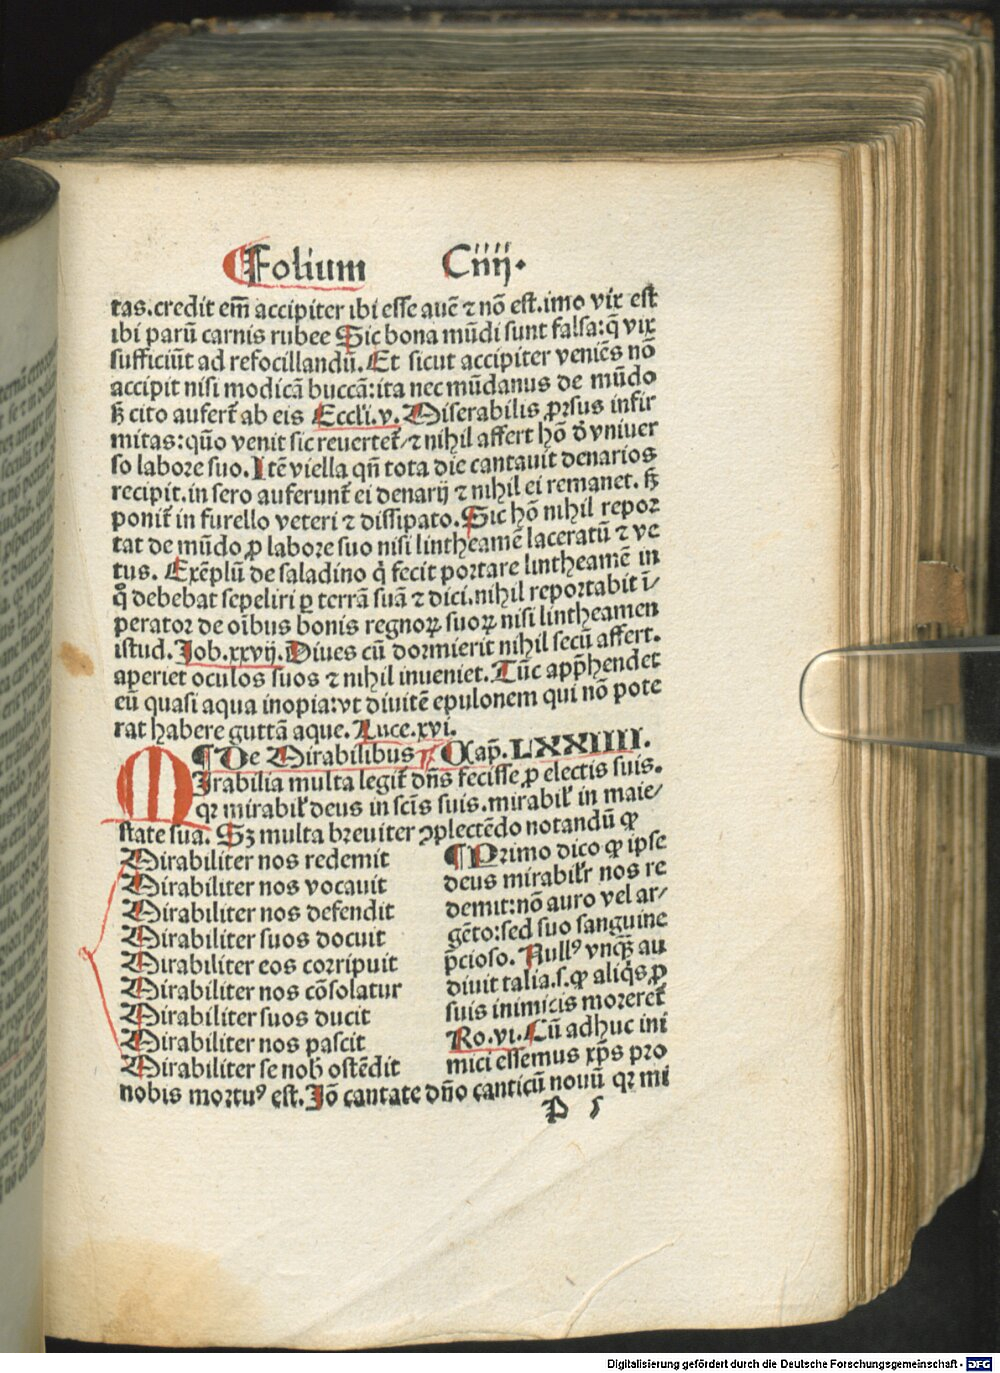 Folium Ciiij.
tas. credit em̄ accipiter ibi esse auē ⁊ nō est. imo vix est
ibi parū carnis rubee Sic bona mūdi sunt falsa: q̄ vix
sufficiūt ad refocillandū. Et sicut accipiter veniēs nō
accipit nisi modicā buccā: ita nec mūdanus de mūdo
ß cito aufert᷑ ab eis Eccli. v. Miserabilis ꝓrsus infir
mitas: quō venit sic reuertet᷑ / ⁊ nihil affert hō d̄ vniuer
so labore suo. Itē viella qn̄ tota die cantauit denarios
recipit. in sero auferunt᷑ ei denarij ⁊ nihil ei remanet. ß
ponit᷑ in furello veteri ⁊ dissipato. Sic hō nihil repor
tat de mūdo ꝓ labore suo nisi lintheamē laceratū ⁊ ve
tus. Exēplū de saladino q̇ fecit portare lintheamē in
q̊ debebat sepeliri ꝑ terrā suā ⁊ dici. nihil reportabit ī/
perator de oībus bonis regnoꝝ suoꝝ nisi lintheamen
istud. Job. xxvij. Diues cū dormierit nihil secū affert.
aperiet oculos suos ⁊ nihil inueniet. Tūc app̄hendet
eū quasi aqua inopia: vt diuitē epulonem qui nō pote
rat habere guttā aque. Luce. xvi.
¶ De Mirabilibus Cap̄. LXXIIII.
MIrabilia multa legit᷑ dn̄s fecisse ꝓ electis suis.
qꝛ mirabil' deus in scīs suis. mirabil' in maie/
state sua. Sꝫ multa breuiter ꝯplectēdo notandū ꝙ
Mirabiliter nos redemit
Mirabiliter nos vocauit
Mirabiliter nos defendit
Mirabiliter suos docuit
Mirabiliter eos corripuit
Mirabiliter nos cōsolatur
Mirabiliter suos ducit
Mirabiliter nos pascit
Mirabiliter se nob ostēdit
¶ Primo dico ꝙ ipse
deus mirabil'r nos re
demit: nō auro vel ar/
gēto: sed suo sanguine
p̄cioso. Nullꝰ vnqꝫ au
diuit talia. s. ꝙ aliq̇s ꝓ
suis inimicis moreret᷑
Ro. vi. Cū adhuc ini
mici essemus xp̄s pro
nobis mortuꝰ est. Jō cantate dn̄o canticū nouū qꝛ mi
Digitalisierung gefördert durch die Deutsche Forschungsgemeinschaft - DFG